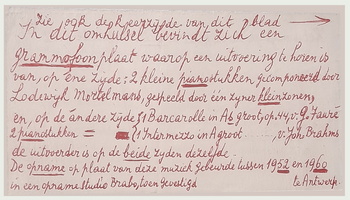 Zie ook de keerzijde van dit blad
In dit omhulsel bevindt zich een
grammofoonplaat waarop een uitvoering te horen is
van, op éne zyde: 2 kleine pianostukken gecomponeerd door
Lodewyk Mortelmans, gespeeld door één zyner kleinzonen,
en, op de andere zyde (1 Barcarolle in As groot, op. 44, v. G. Fauré
2 pianostukken = (1 Intermezzo in A groot v. Joh. Brahms
de uitvoerder is op de beide zyden dezelfde.
De opname op plaat van deze muziek gebeurde tussen 1952 en 1960
in een opname studio Brabo, toen gevestigd te Antwerp.